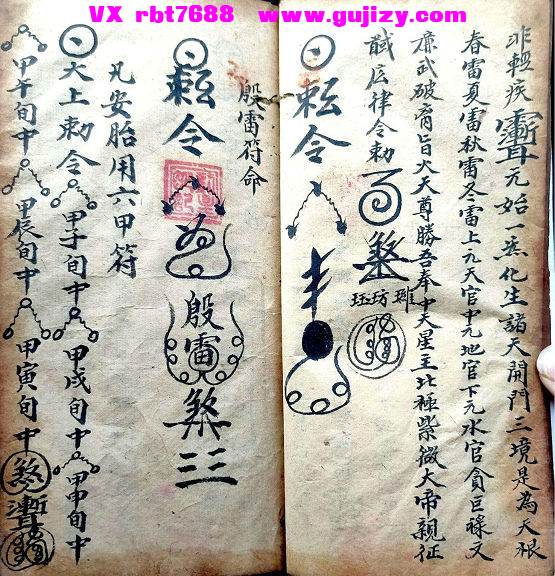 VX rbt7688 www.gujizy.com
非輕疾 元始一炁化生諸天開門三境是為天根
春雷夏雷秋雷冬雷上元天官中元地官下元水官貪巨祿文
廉武破 旨火天尊勝吾奉中天星主北極紫微大帝親征
律令勅 煞
勅令
殷雷符命
勅令 殷雷 煞 三
凡安胎用六甲符
大上勅令 甲子旬中 甲戌旬中 甲申旬中
甲午旬中 甲辰旬中 甲寅旬中 煞